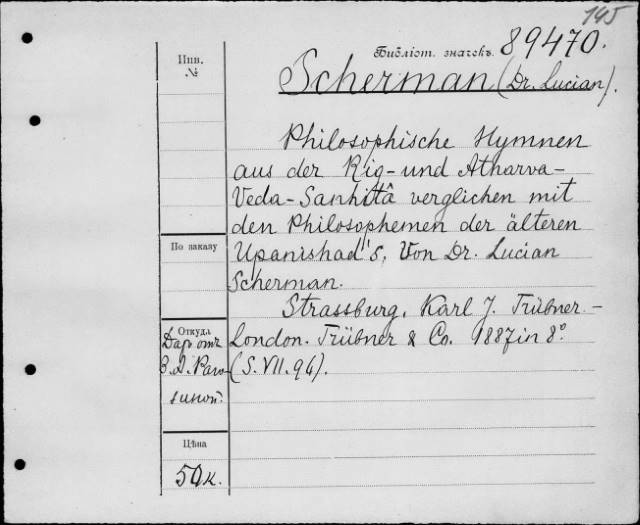 145
Инв.
№
Библіот. значекъ. 89470.
Scherman (Dr. Lucian).
Philosophische Hymnen
aus der Rig- und Atharva-
Veda-Sanhitâ verglichen mit
den Philosophemen der älteren
Upanishad's, Von Dr. Lucian
Scherman.
Strassburg, Karl J. Trübner.-
London. Trübner & Co. 1887 in 8°
(S. VII. 94).
По заказу
Откуда
Даръ отъ
Цѣна
50 к.